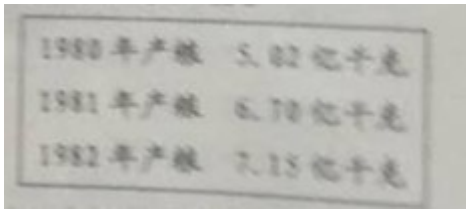 1980年产粮 5.02亿千克
1981年产粮 6.70亿千克
1982年产粮 7.15亿千克